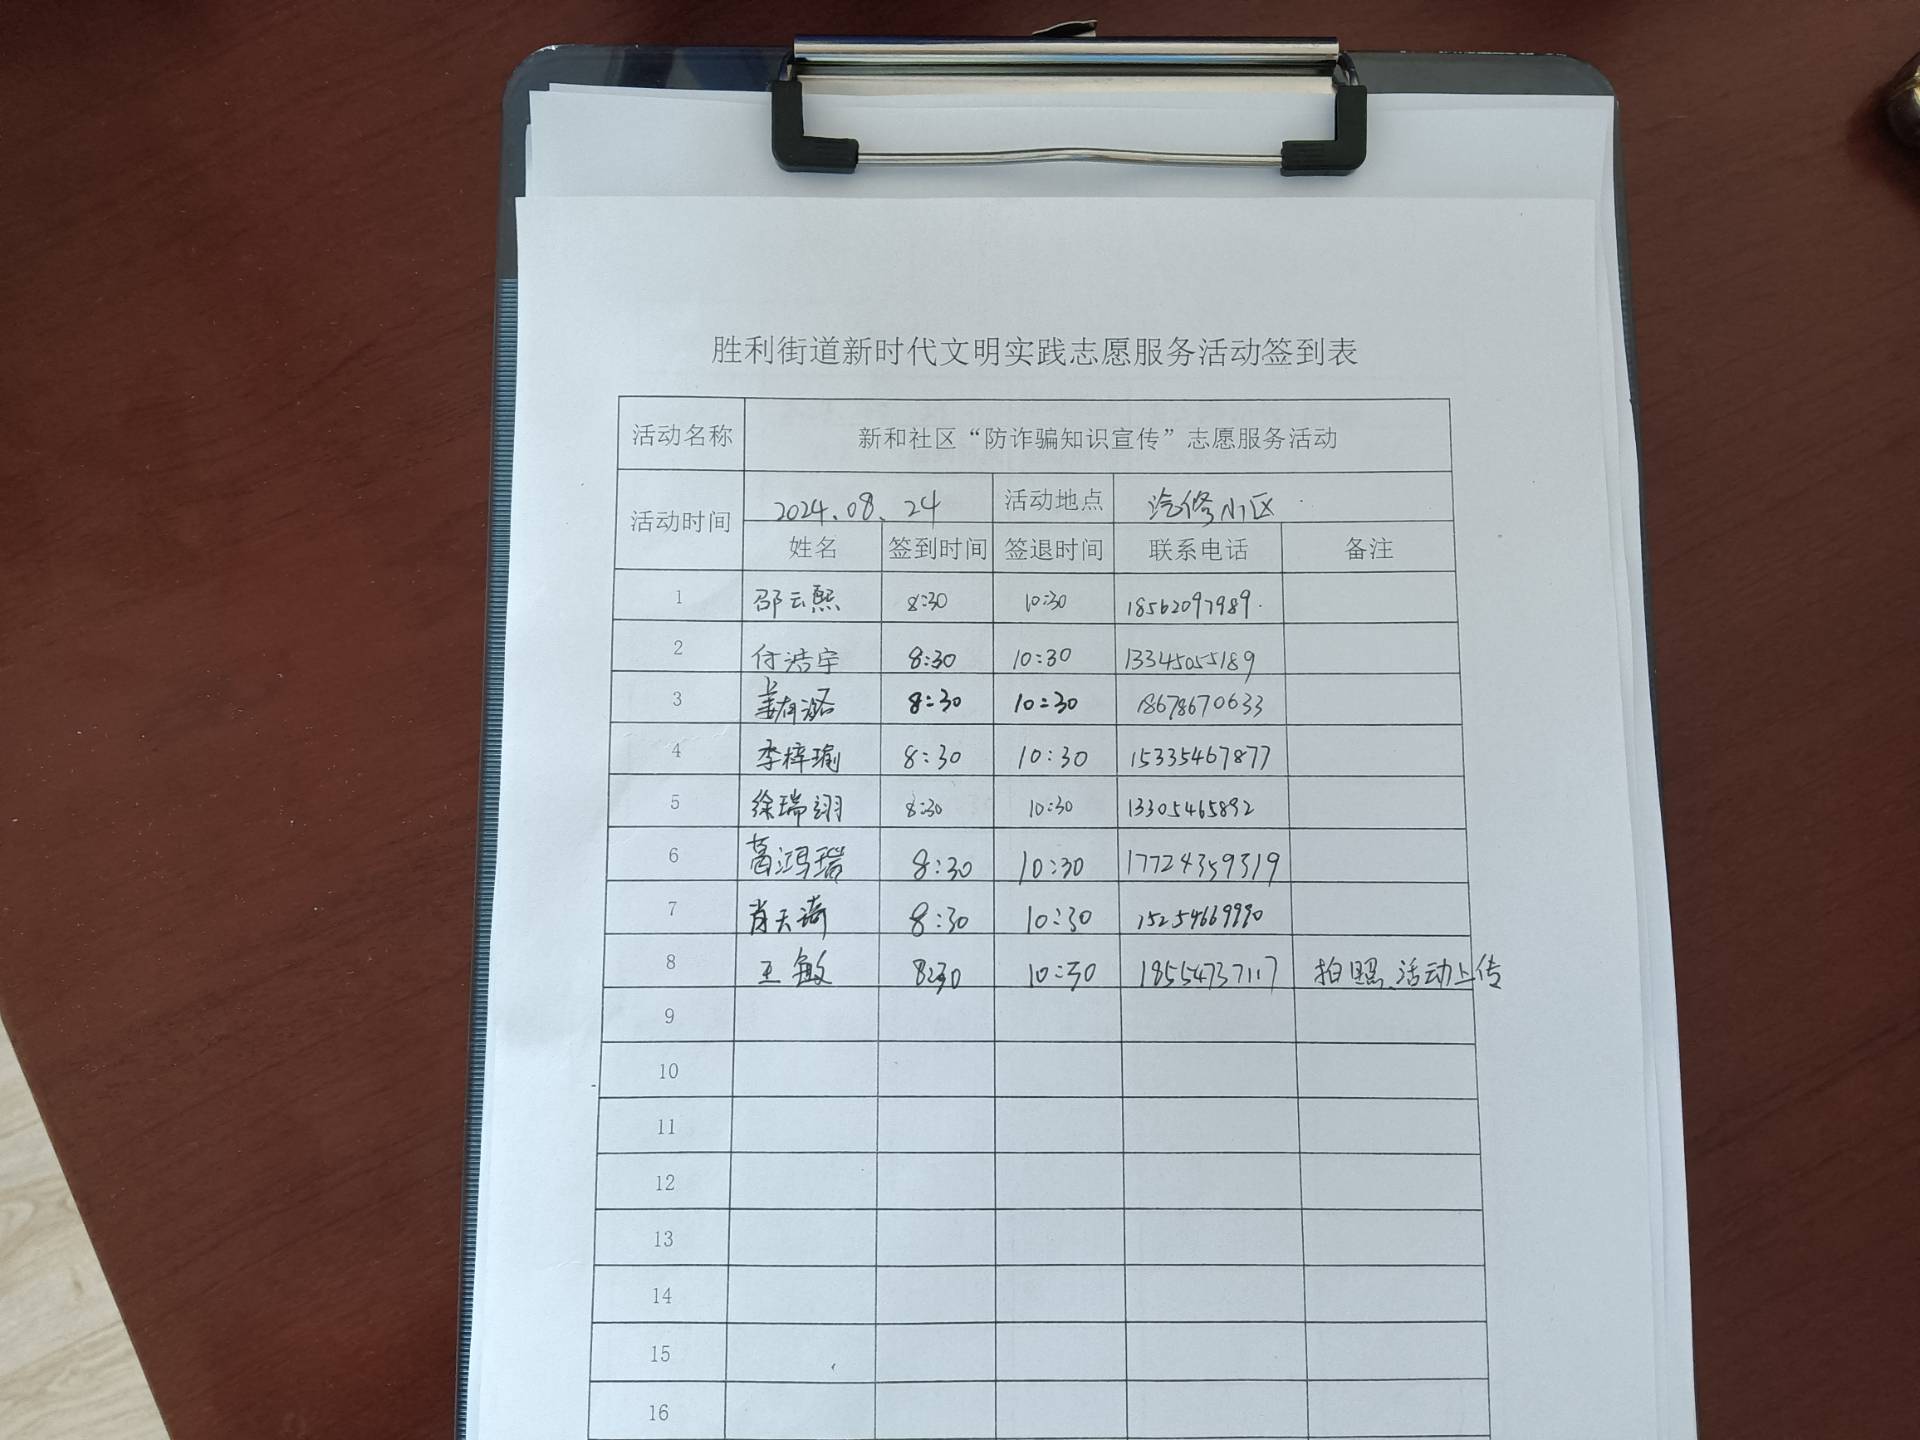 胜利街道新时代文明实践志愿服务活动签到表
活动名称 新和社区“防诈骗知识宣传”志愿服务活动
活动时间 2024.08.24 活动地点 汽修小区
姓名 签到时间 签退时间 联系电话 备注
1 邵云熙 8:30 10:30 18562097989
2 付浩宇 8:30 10:30 13345055189
3 8:30 10:30 18678670633
4 李梓瑜 8:30 10:30 15335467877
5 徐瑞翊 8:30 10:30 13305465892
6 葛鸿瑞 8:30 10:30 17724359319
7 肖天琦 8:30 10:30 15254669990
8 王敏 8:30 10:30 18554737117 拍照、活动上传
9
10
11
12
13
14
15
16